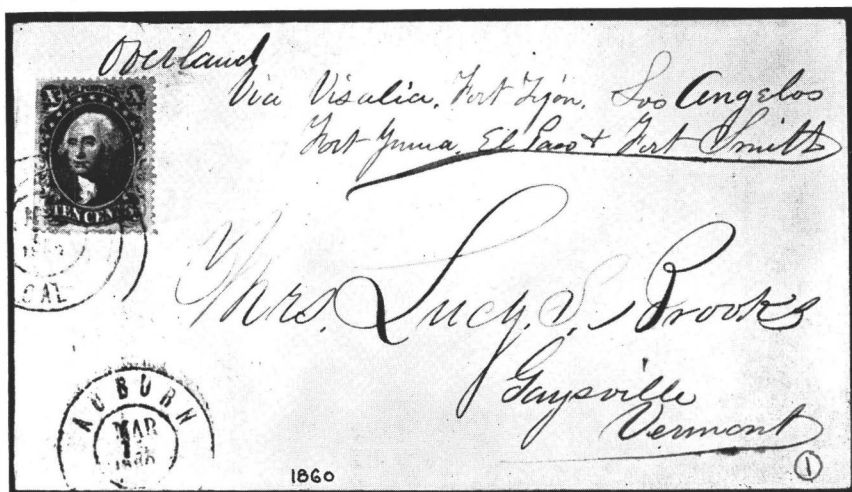 Overland
Via Visalia, Fort Tejón, Los Angelos
Fort Yuma, El Paso & Fort Smith
TEN CENTS
CAL
Mrs. Lucy. S. Brooks
Gaysville
Vermont
AUBURN
MAR
1
1860
1